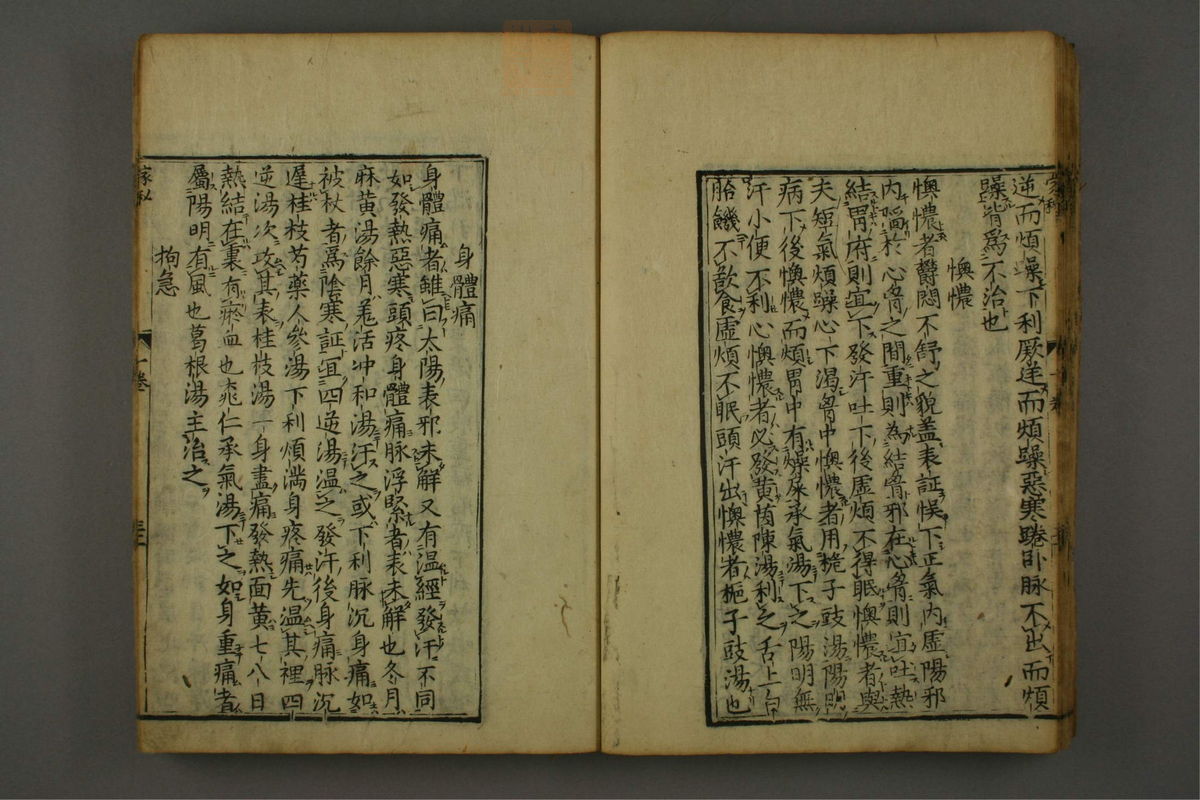 逆而煩躁下利厥逆而煩躁惡寒踡卧脉不出而煩
躁皆爲不治也
懊憹
懊憹者欝悶不舒之貌盖表証悞下正氣内虛陽邪
内陥於心胷之間重則為結胷邪在心胷則宜吐熱
結胃府則宜下發汗吐下後虛煩不得眠懊憹者與
夫短氣煩躁心下渴胷中懊憹者用梔子豉湯陽明
病下後懊憹而煩胃中有燥屎承氣湯下之陽明無
汗小便不利心懊憹者必發黄茵陳湯利之舌上白
胎饑不飲食虛煩不眠頭汗出懊憹者梔子豉湯也
身體痛
身體痛者雖曰太陽表邪未解又有温經發汗不同
如發熱惡寒頭疼身體痛脉浮緊者表未解也冬月
麻黄湯餘月羗活冲和湯汗之或下利脉沉身痛如
被杖者爲陰寒証宜四逆湯温之發汗後身痛脉沉
遲桂枝芍藥人參湯下利煩満身疼痛先温其裡四
逆湯次攻其表桂枝湯一身盡痛發熱面黄七八日
熱結在裏有瘀血也桃仁承氣湯下之如身重痛者
屬陽明有風也葛根湯主治之
拘急
十卷